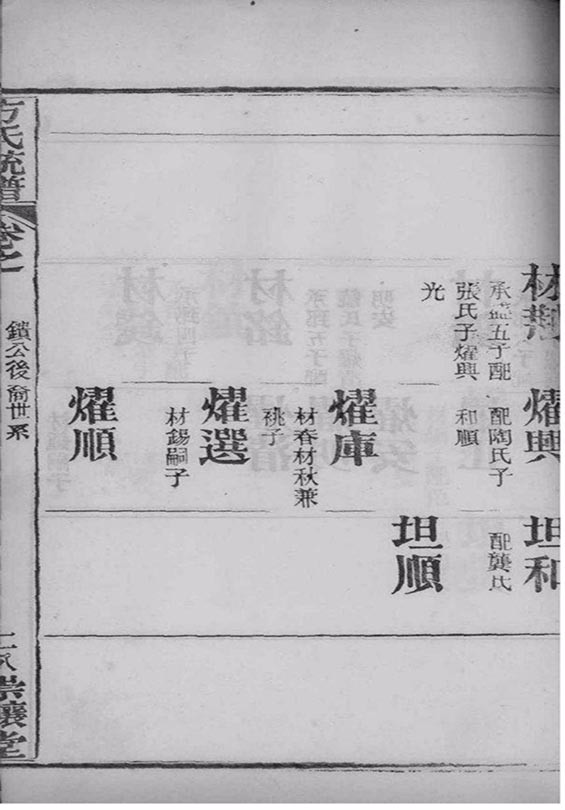 材
承益五子配
張氏子燿興
光
燿興
配陶氏子
和順
坦和
配龔氏
坦順
燿庫
材春材秋兼
祧子
燿選
材錫嗣子
燿順
方氏統譜
卷之
鎖公後裔世系
二八
崇讓堂